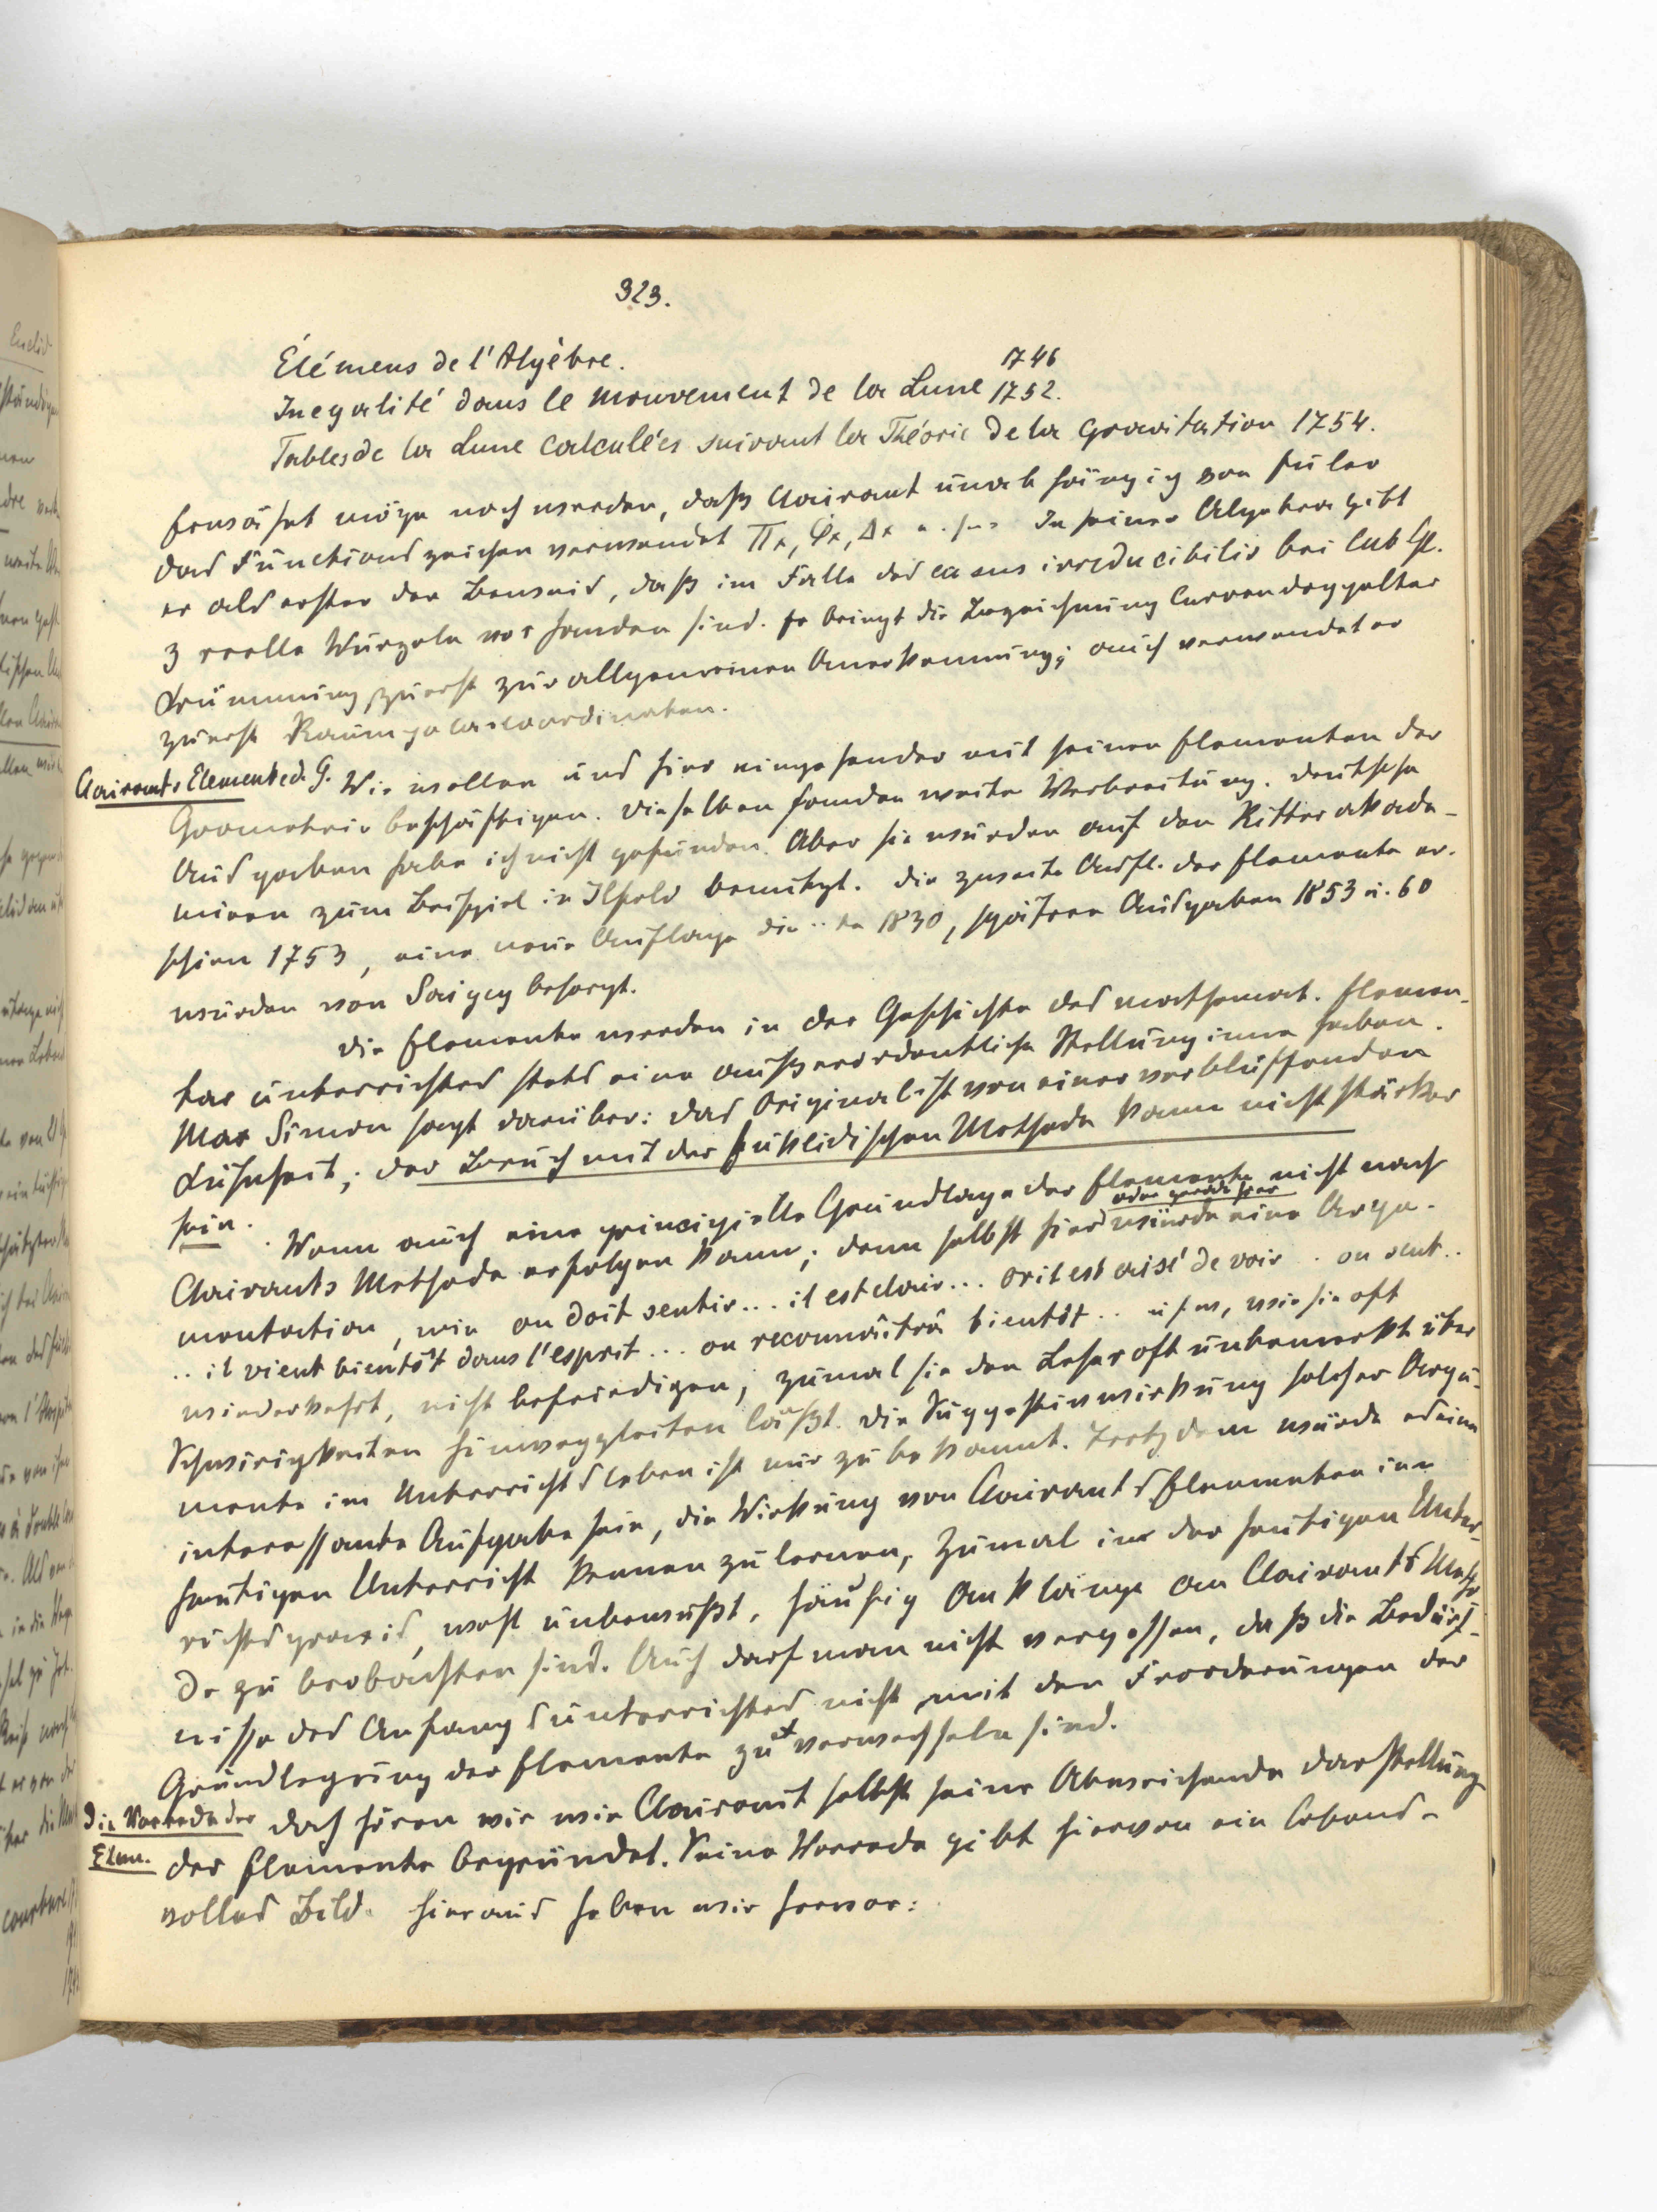 323.
Élémens de l'Algèbre. 1746
Inegalité dans le mouvement de la Lune 1752.
Tables de la Lune calculées suivant la Théorie de la gravitation 1754.
Erwähnt möge noch werden, daß Clairaut unabhängig von Euler
das Functionszeichen verwendet Πx, Φx, Δx u.s.w. In seiner Algebra gibt
er als erster den Beweis, daß im Falle des casus irreducibilis bei cub Gl.
3 reelle Wurzeln vorhanden sind. Er bringt die Bezeichnung Curven doppelter
Krümmung zuerst zur allgemeinen Anerkennung; auch verwendet er
zuerst Raumpolarcoordinaten.
Clairauts Elemente d. G. Wir wollen uns hier eingehender mit seinen Elementen der
Geometrie beschäftigen. Dieselben fanden weite Verbreitung. Deutsche
Ausgaben habe ich nicht gefunden. Aber sie wurden auf den Ritterakade-
mieen zum Beispiel in Ilfeld benützt. Die zweite Aufl. der Elemente er-
schien 1753, eine neue Auflage die 1830, späteren Ausgaben 1853 u. 60
wurden von Saigey besorgt.
Die Elemente werden in der Geschichte des mathemat. Elemen-
tarunterrichtes stets eine außerordentliche Stellung inne haben.
Max Simon sagt darüber: das Original ist von einer verblüffenden
Kühnheit; der Bruch mit der Euklidischen Methode kann nicht stärker
sein.
Wenn auch eine principielle Grundlage der Elemente nicht nach
Clairauts Methode erfolgen kann; denn selbst hier oder gerade hier würde eine Argu-
mentation, wie on doit sentir... il est clair... or il est aisé de voir.. on sent..
.. il vient bientôt dans l'esprit... on reconnaîtra bientôt.. usw, wie sie oft
wiederkehrt, nicht befriedigen, zumal sie den Leser oft unbemerkt über
Schwierigkeiten hinweggleiten läßt. Die Suggestivwirkung solcher Argu-
mente im Unterrichtsleben ist nur zu bekannt. Trotzdem würde es eine
interessante Aufgabe sein, die Wirkung von Clairauts Elementen im
heutigen Unterricht kennen zu lernen, zumal in der heutigen Unter-
richtspraxis, wohl unbewußt, häufig Anklänge an Clairauts Metho-
de zu beobachten sind. Auch darf man nicht vergessen, daß die Bedürf-
nisse des Anfangsunterrichtes nicht mit den Forderungen der
Grundlegung der Elemente zu verwechseln sind.
Die Vorrede der Elem. Doch hören wir wie Clairaut selbst seine Abweichende Darstellung
der Elemente begründet. Seine Vorrede gibt hiervon ein lebens-
volles Bild. Hieraus heben wir hervor: